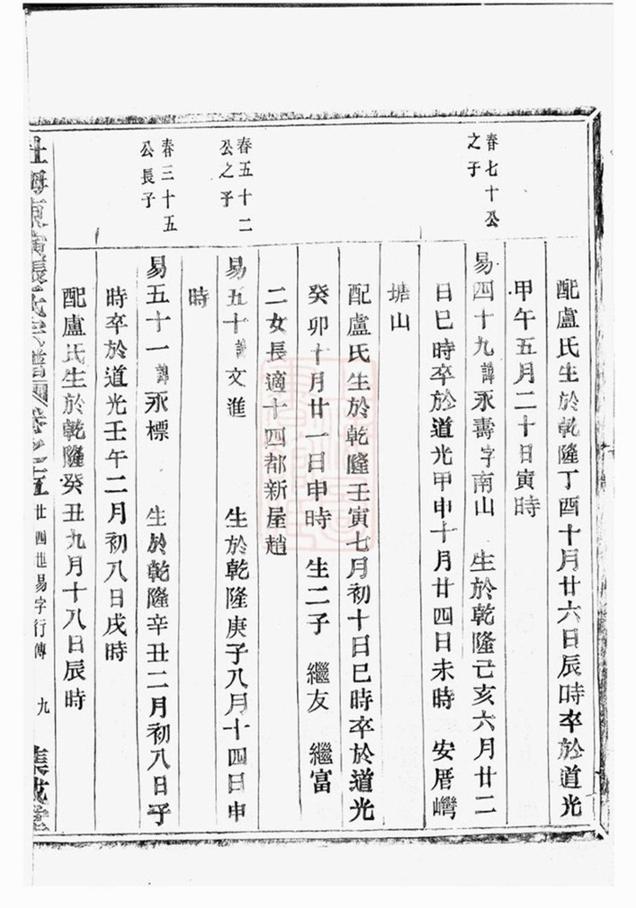 配盧氏生於乾隆丁酉十月廿六日辰時卒於道光
甲午五月二十日寅時
春七十公
之子
易四十九諱永壽字南山 生於乾隆己亥六月廿二
日巳時卒於道光甲申十月廿四日未時 安厝嶴
塘山
配盧氏生於乾隆壬寅七月初十日巳時卒於道光
癸卯十月廿一日申時 生二子 繼友 繼富
二女長適十四都新屋趙
春五十二
公之子
易五十諱文進 生於乾隆庚子八月十四日申
時
春三十五
公長子
易五十一諱永標 生於乾隆辛丑二月初八日子
時卒於道光壬午二月初八日戌時
配盧氏生於乾隆癸丑九月十八日辰時
張氏宗譜 卷之五 廿四世易字行傳 九 集成堂